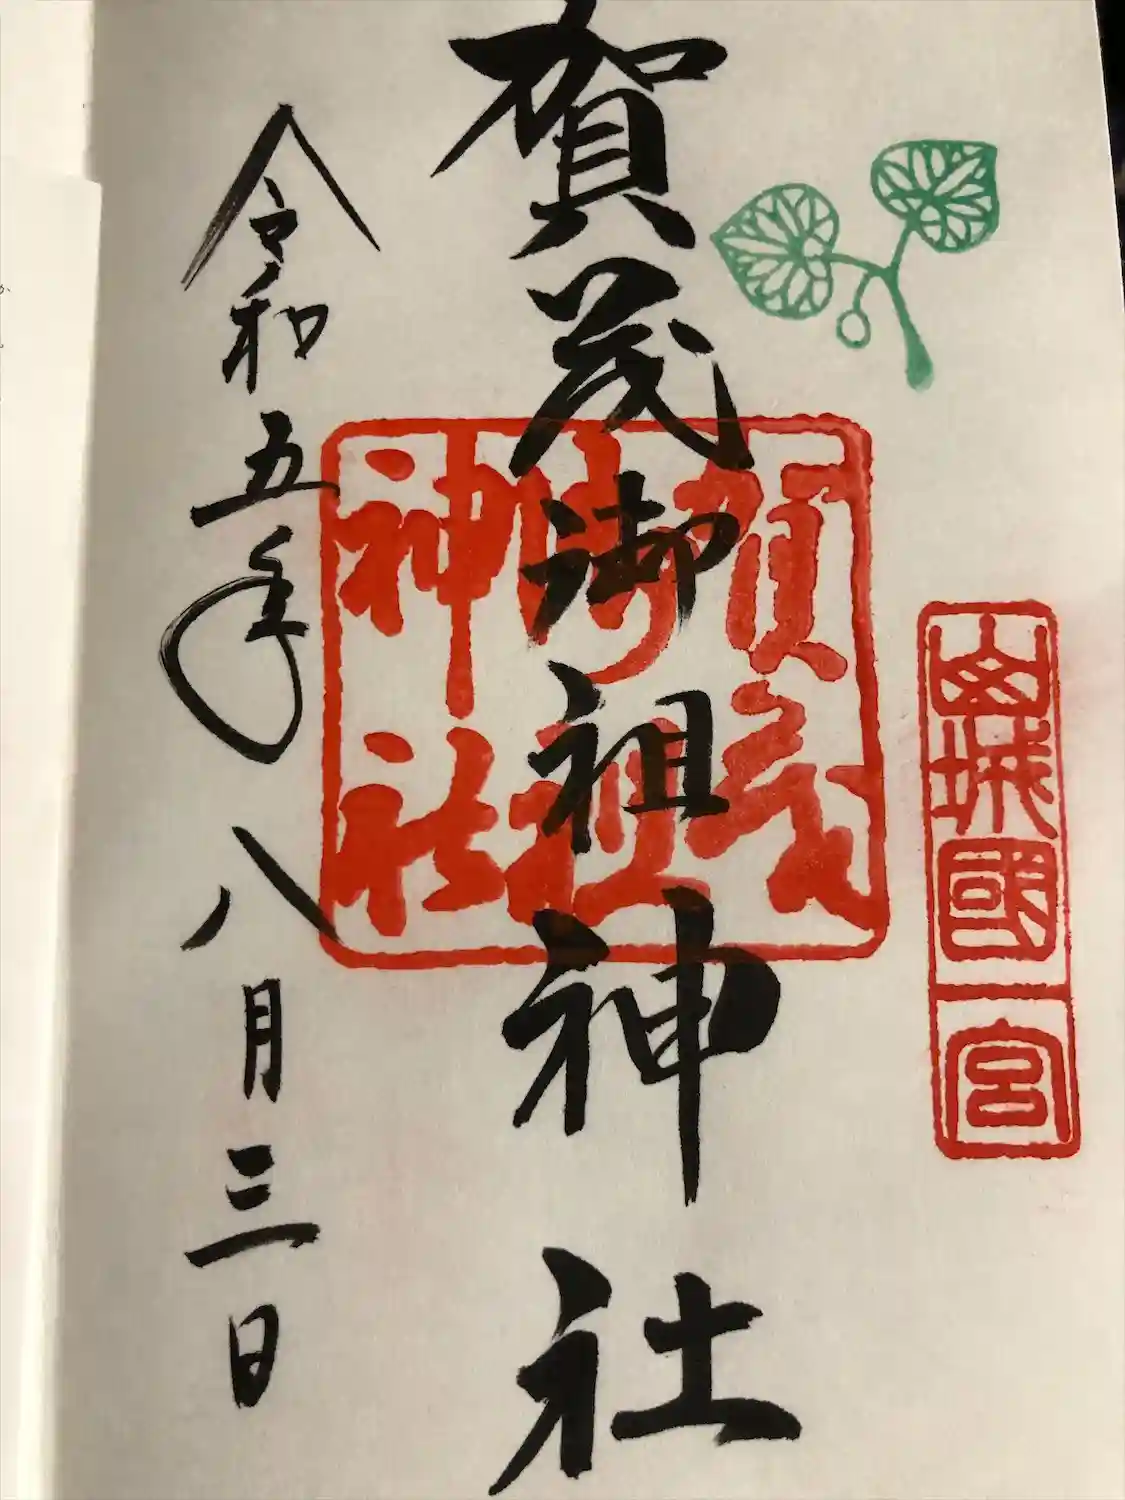 山城國一宮
賀茂御祖神社
賀茂
御祖
神社
令和五年八月三日